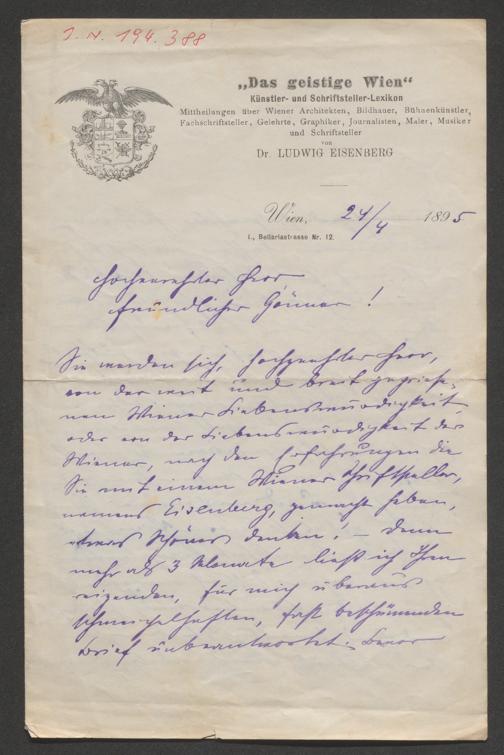 I. N. 194.388
„Das geistige Wien“
Künstler- und Schriftsteller-Lexikon
Mittheilungen über Wiener Architekten, Bildhauer, Bühnenkünstler,
Fachschriftsteller, Gelehrte, Graphiker, Journalisten, Maler, Musiker
und Schriftsteller
von
Dr. LUDWIG EISENBERG
Wien, 24/4 1895
I., Bellariastrasse Nr. 12.
Hochverehrter Herr,
freundlicher Gönner!
Sie werden sich, hochverehrter Herr,
von der weit und breit gepriese-
nen Wiener Liebenswürdigkeit
oder von der Liebenswürdigkeit der
Wiener, nach den Erfahrungen die
Sie mit einem Wiener Schriftsteller,
namens Eisenberg, gemacht haben,
etwas Schönes denken! – Denn
mehr als 3 Monate ließ ich Ihren
reizenden, für mich überaus
schmeichelhaften, fast beschämenden
Brief unbeantwortet. Bevor